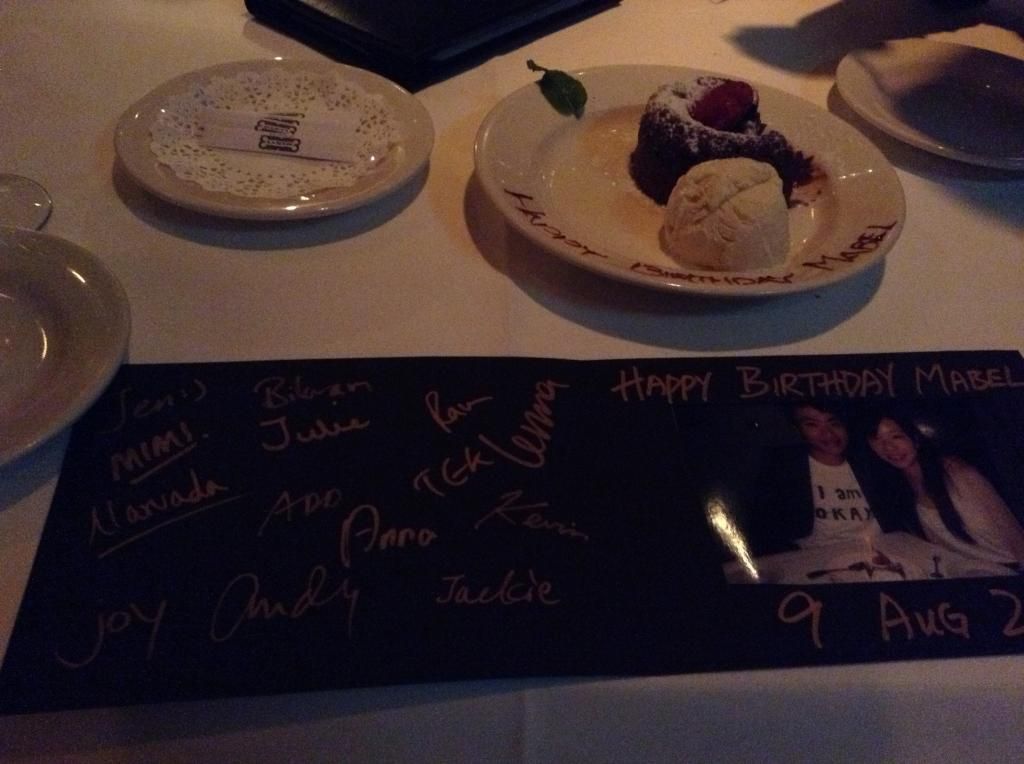 HAPPY BIRTHDAY MABEL
HAPPY BIRTHDAY MABEL
MIMI.
Julie
TEK
Lenna
ADD
Anna
Kevin
JOY
Andy
Jackie
I am
OKAY
9 AUG 2